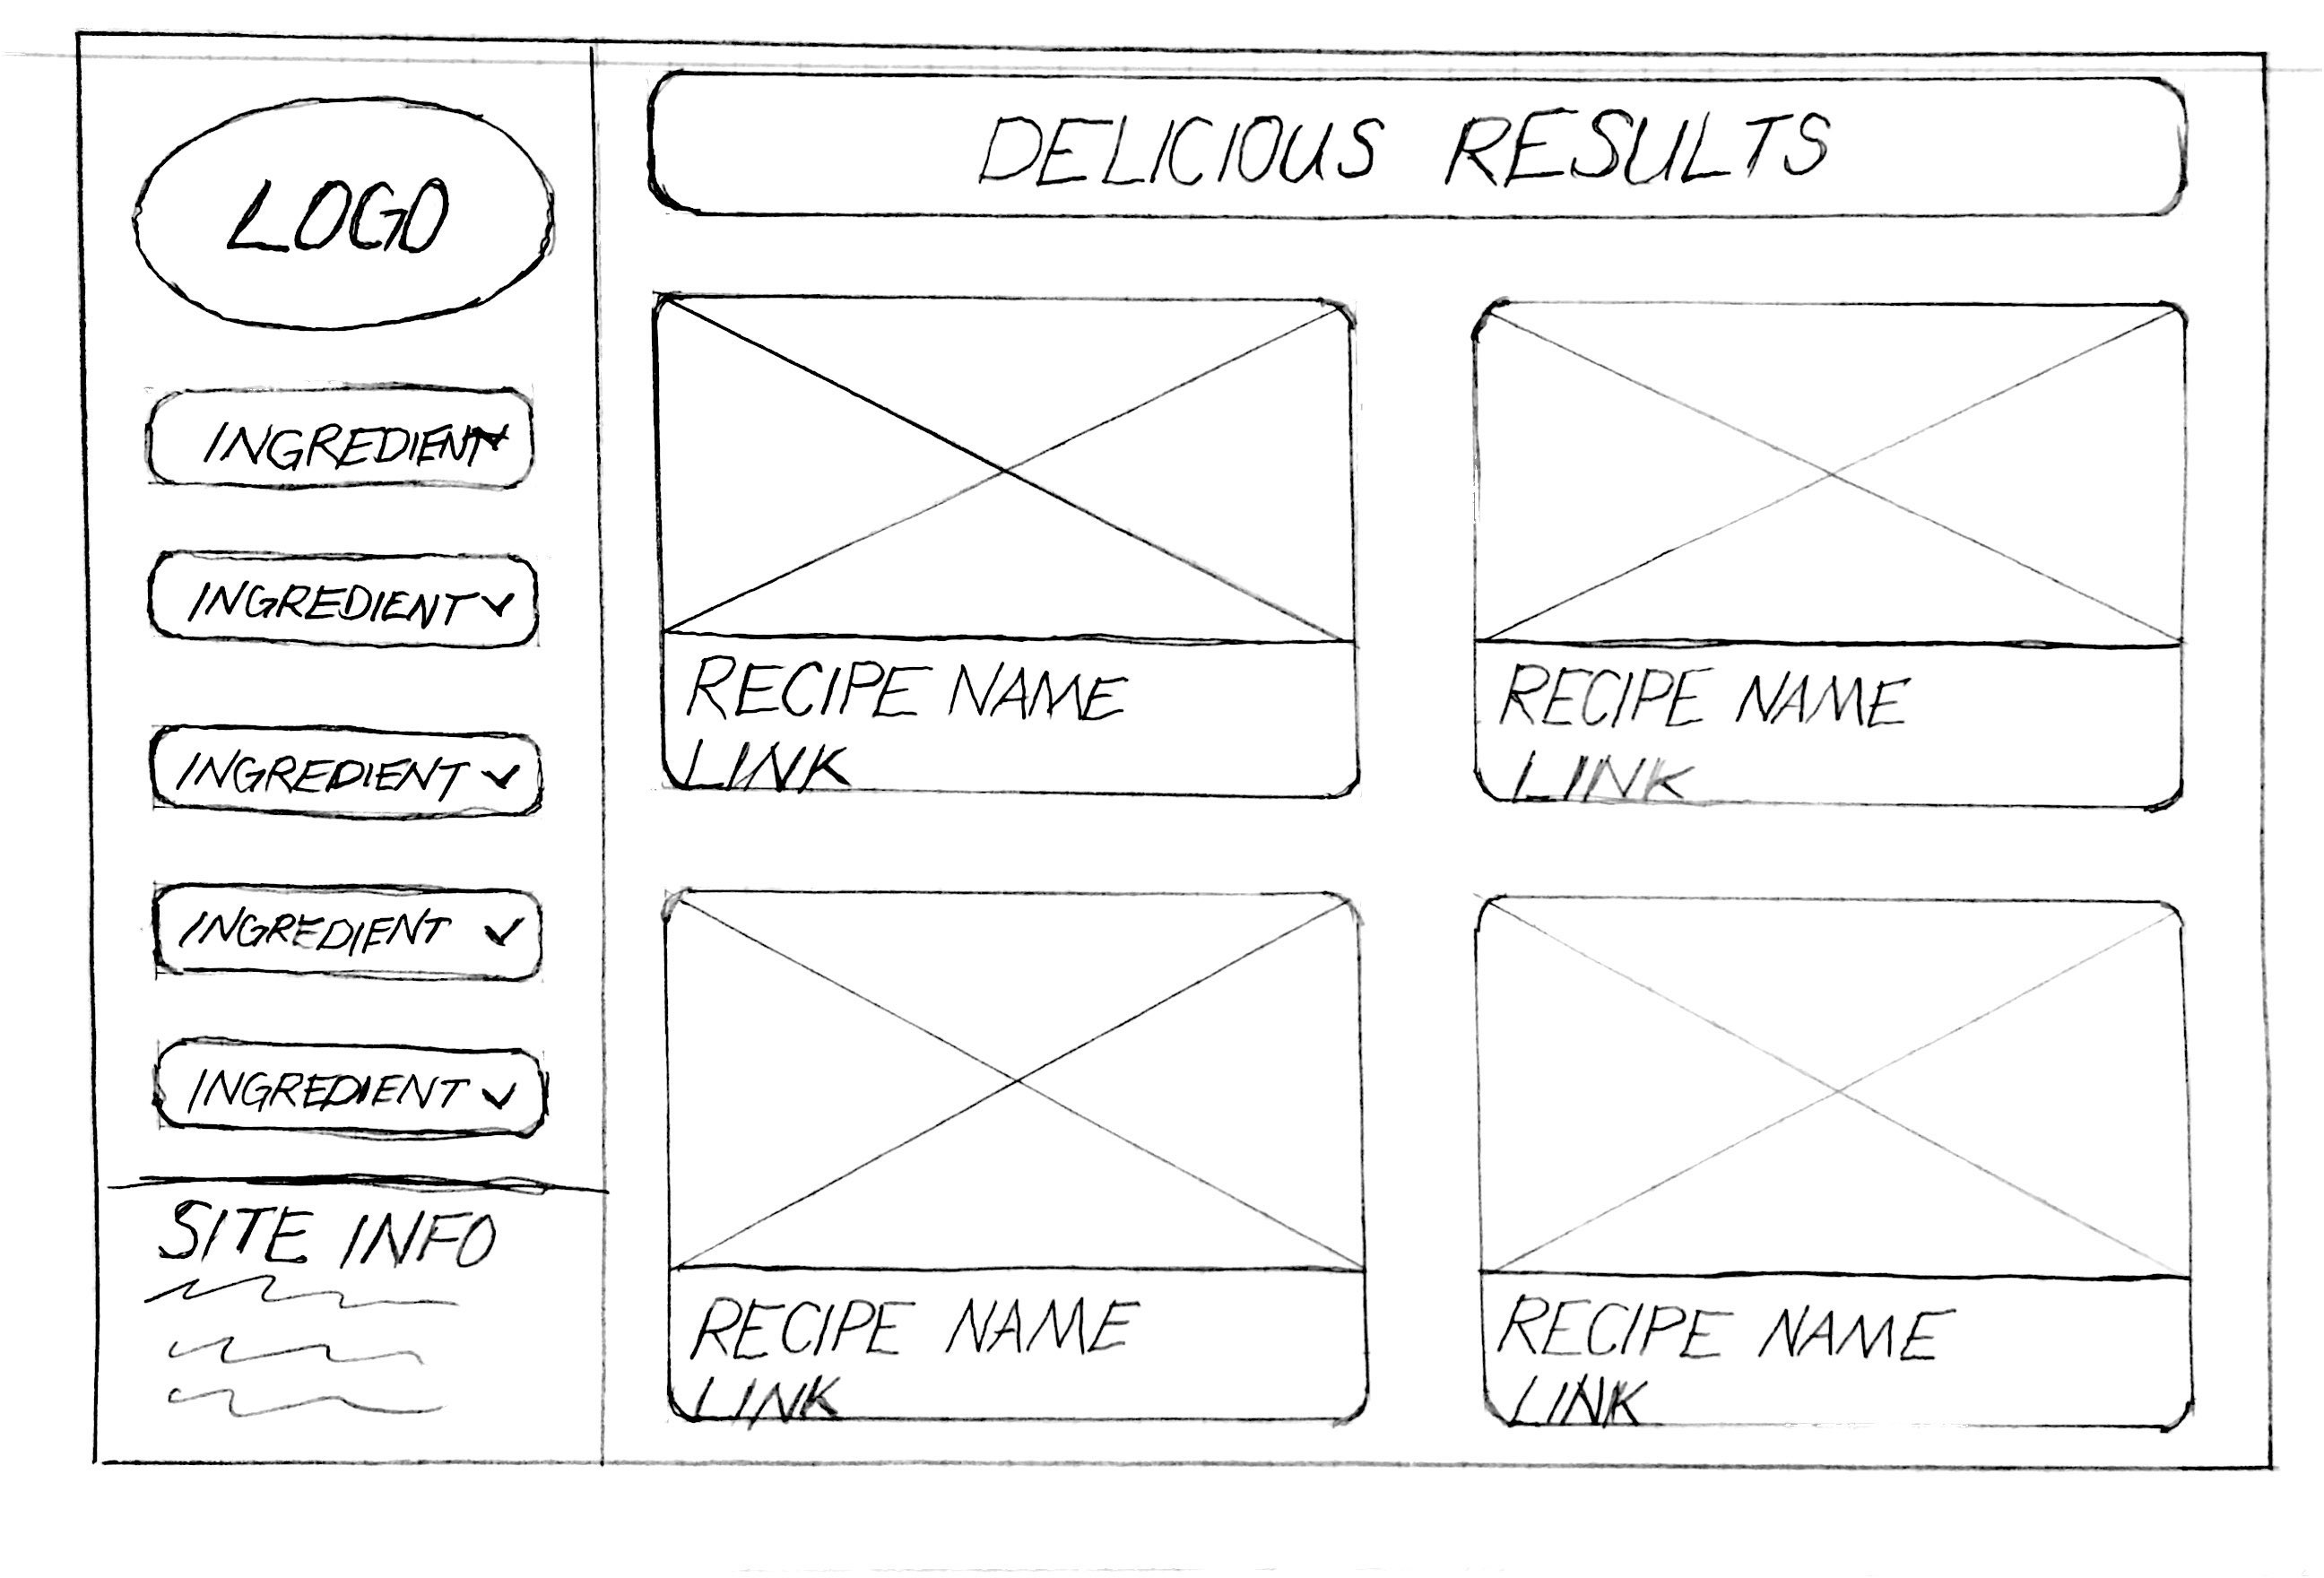 LOGO
INGREDIENT
INGREDIENT
INGREDIENT
INGREDIENT
INGREDIENT
SITE INFO
DELICIOUS RESULTS
RECIPE NAME
LINK
RECIPE NAME
LINK
RECIPE NAME
LINK
RECIPE NAME
LINK